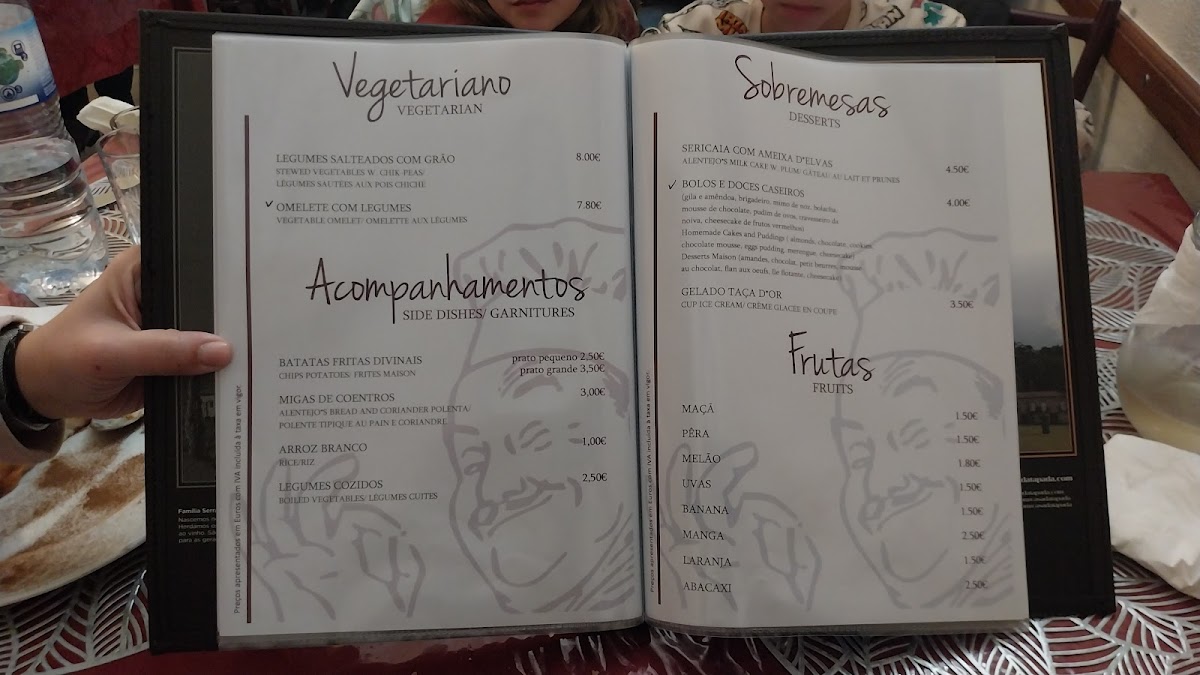 Vegetariano
VEGETARIAN
LEGUMES SALTEADOS COM GRÃO 8.00€
STEWED VEGETABLES W. CHIK-PEAS/
LÉGUMES SAUTÉES AUX POIS CHICHE
✓ OMELETE COM LEGUMES 7.80€
VEGETABLE OMELET/ OMELITTE AUX LÉGUMES
Acompanhamentos
SIDE DISHES/ GARNITURES
BATATAS FRITAS DIVINAIS prato pequeno 2,50€
CHIPS POTATOES/ FRITES MAISON prato grande 3,50€
MIGAS DE COENTROS 3,00€
ALENTEJO'S BREAD AND CORIANDER POLENTA/
POLENTE TIPIQUE AU PAIN E CORIANDRE
ARROZ BRANCO 1,00€
RICE/RIZ
LEGUMES COZIDOS 2,50€
BOILED VEGETABLES/ LÉGUMES CUITES
Preços apresentados em Euros com IVA incluída à taxa em vigor.
Sobremesas
DESSERTS
SERICAIA COM AMEIXA D'ELVAS
ALENTEJO'S MILK CAKE W. PLUM/ GÂTEAU AU LAIT ET PRUNES 4.50€
✓ BOLOS E DOCES CASEIROS 4.00€
(gila e amêndoa, brigadeiro, mimo de noz, bolacha,
mousse de chocolate, pudim de ovos, travesseiro da
noiva, cheesecake de frutos vermelhos)
Homemade Cakes and Puddings ( almonds, chocolate, cookies,
chocolate mousse, eggs pudding, merengue, cheesecake)
Desserts Maison (amandes, chocolat, petit beurres, mousse
au chocolat, flan aux oeufs, île flotante, cheesecake)
GELADO TAÇA D'OR 3.50€
CUP ICE CREAM/ CRÈME GLACÉE EN COUPE
Frutas
FRUITS
MAÇÃ 1.50€
PÊRA 1.50€
MELÃO 1.80€
UVAS 1.50€
BANANA 1.50€
MANGA 2.50€
LARANJA 1.50€
ABACAXI 2.50€
Preços apresentados em Euros com IVA incluída à taxa em vigor.
Família Serra
Nascemos
Herdamos
ao vinho.
para as
datapada.com